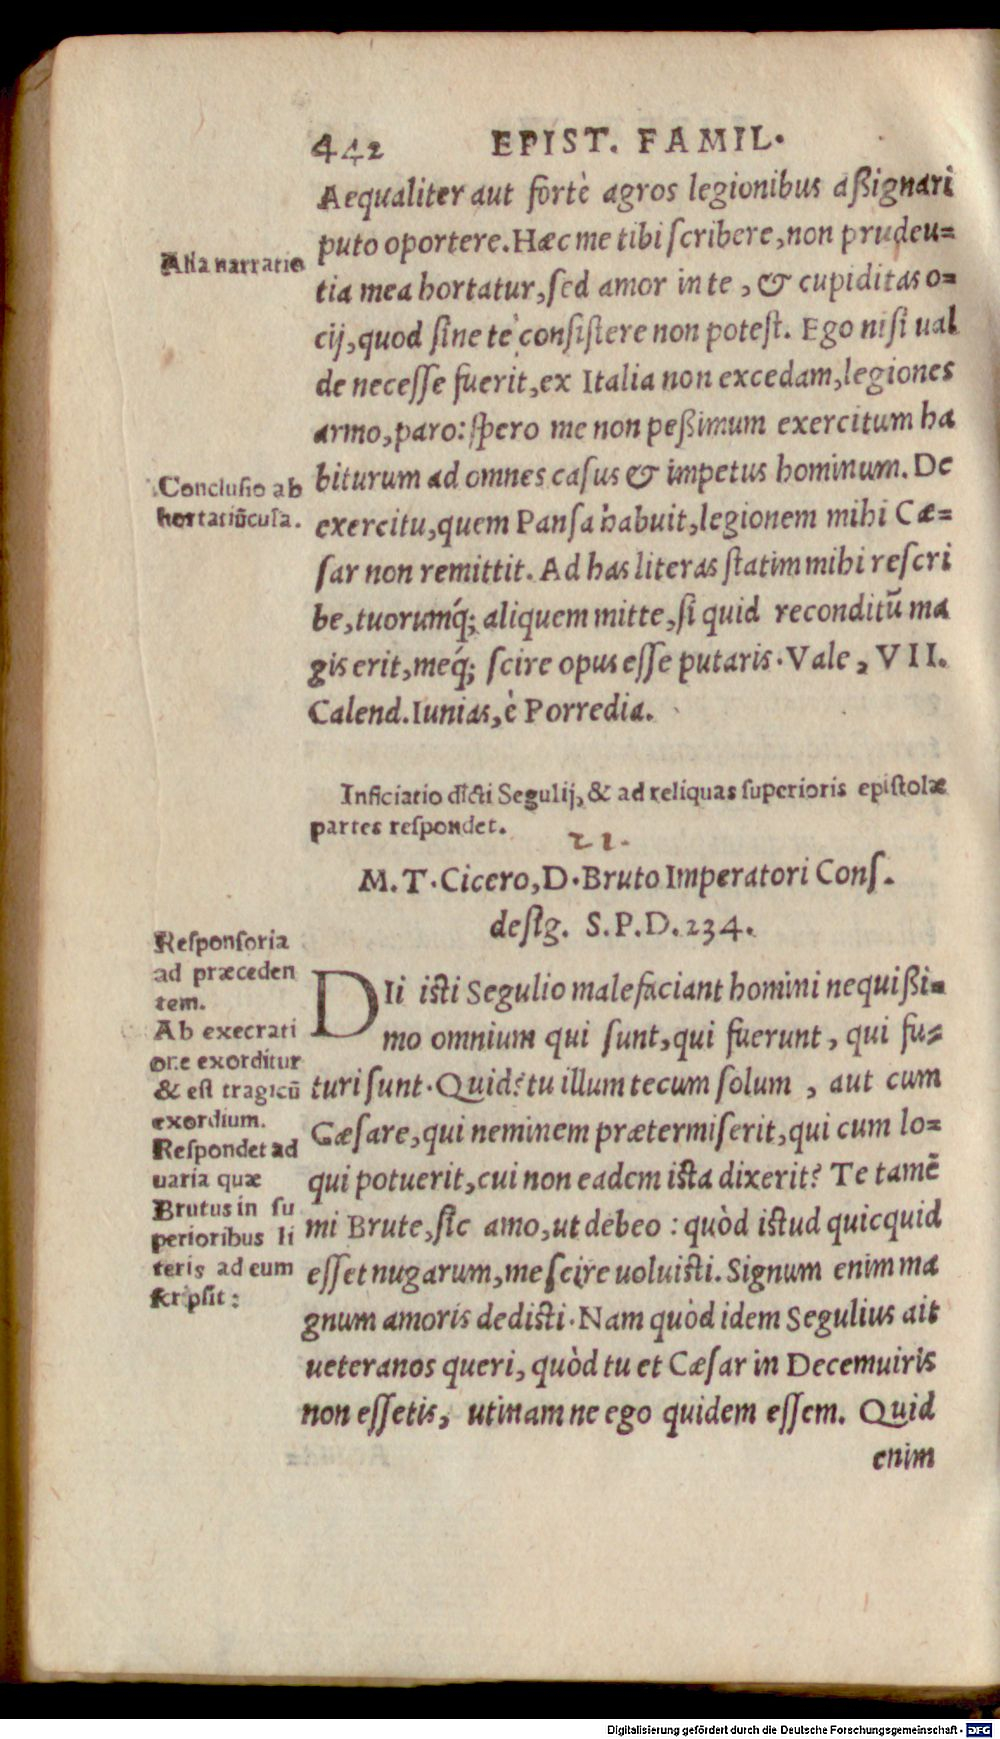 442 EPIST. FAMIL.
Aequaliter aut fortè agros legionibus aßignari
puto oportere. Hæc me tibi ſcribere, non prudeu=
tia mea hortatur, ſed amor in te, & cupiditas o=
cij, quod ſine te cõnſiſtere non poteſt. Ego niſi ual
de neceſſe fuerit, ex Italia non excedam, legiones
armo, paro: ſpero me non peßimum exercitum ha
biturum ad omnes caſus & impetus hominum. De
exercitu, quem Panſa habuit, legionem mihi Cæ=
ſar non remittit. Ad has literas ſtatim mihi reſcri
be, tuorumq́; aliquem mitte, ſi quid reconditũ ma
gis erit, meq́; ſcire opus eſſe putaris. Vale, VII.
Calend. Iunias, è Porredia.
Alia narratio
Concluſio ab
hortatiũcula.
Inficiatio dicti Segulij, & ad reliquas ſuperioris epiſtolæ
partes reſpondet.
21.
M. T. Cicero, D. Bruto Imperatori Conſ.
deſig. S. P. D. 234.
DIi iſti Segulio malefaciant homini nequißi=
mo omnium qui ſunt, qui fuerunt, qui fu=
turi ſunt. Quid? tu illum tecum ſolum, aut cum
Cæſare, qui neminem prætermiſerit, qui cum lo=
qui potuerit, cui non eadem iſta dixerit? Te tamẽ
mi Brute, ſic amo, ut debeo: quòd iſtud quicquid
eſſet nugarum, me ſcire uoluiſti. Signum enim ma
gnum amoris dediſti. Nam quòd idem Segulius ait
ueteranos queri, quòd tu et Cæſar in Decemuiris
non eſſetis, utinam ne ego quidem eſſem. Quid
enim
Reſponſoria
ad præceden
tem.
Ab execrati
one exorditur
& eſt tragicũ
exordium.
Reſpondet ad
uaria quæ
Brutus in ſu
perioribus li
teris ad eum
ſcripſit:
Digitalisierung gefördert durch die Deutsche Forschungsgemeinschaft - DFG